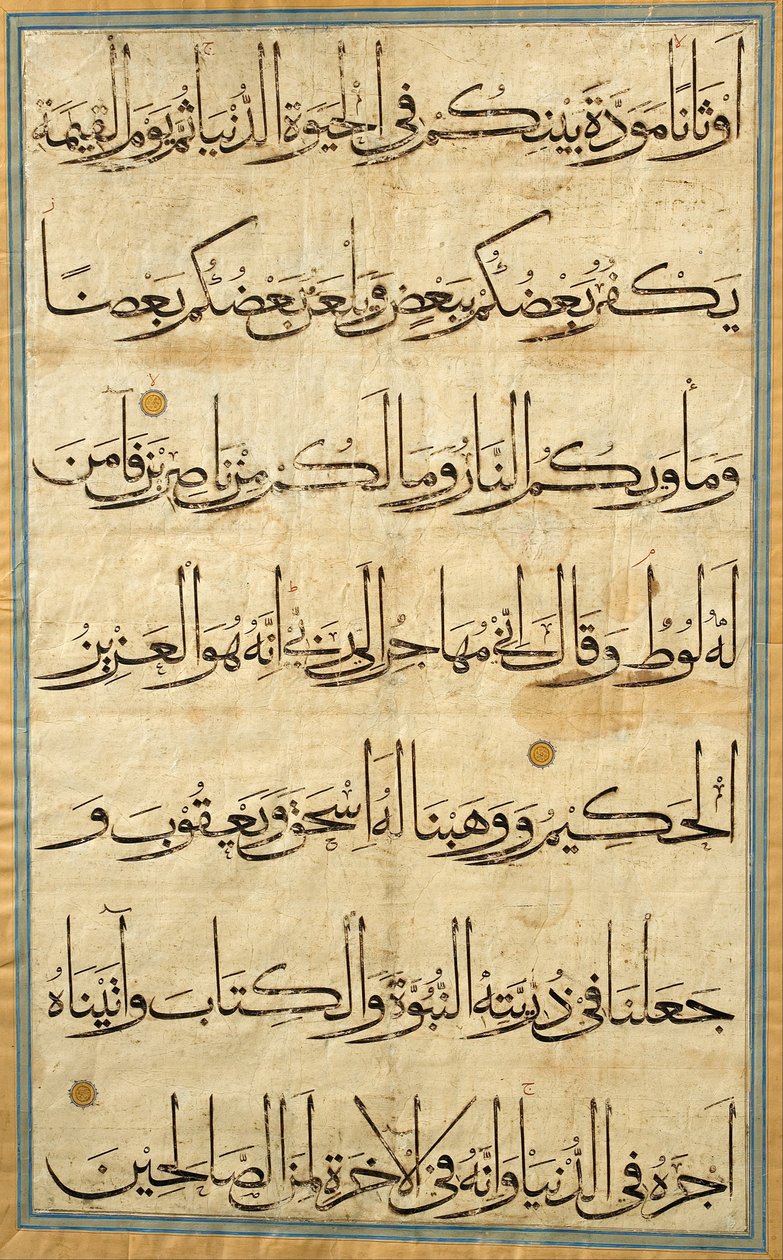 اَوْثَانًا مَوَدَّةَ بَيْنِكُمْ فِي الْحَيٰوةِ الدُّنْيَا ثُمَّ يَوْمَ الْقِيٰمَةِ
يَكْفُرُ بَعْضُكُمْ بِبَعْضٍ وَيَلْعَنُ بَعْضُكُمْ بَعْضًا
وَمَأْوٰىكُمُ النَّارُ وَمَا لَكُمْ مِنْ نَاصِرِينَ فَآمَنَ
لَهُ لُوطٌ وَقَالَ اِنِّي مُهَاجِرٌ اِلٰى رَبِّي اِنَّهُ هُوَ الْعَزِيزُ
الْحَكِيمُ وَوَهَبْنَا لَهُ اِسْحٰقَ وَيَعْقُوبَ وَ
جَعَلْنَا فِي ذُرِّيَّتِهِ النُّبُوَّةَ وَالْكِتَابَ وَآتَيْنَاهُ
اَجْرَهُ فِي الدُّنْيَا وَاِنَّهُ فِي الْاٰخِرَةِ لَمِنَ الصَّالِحِينَ